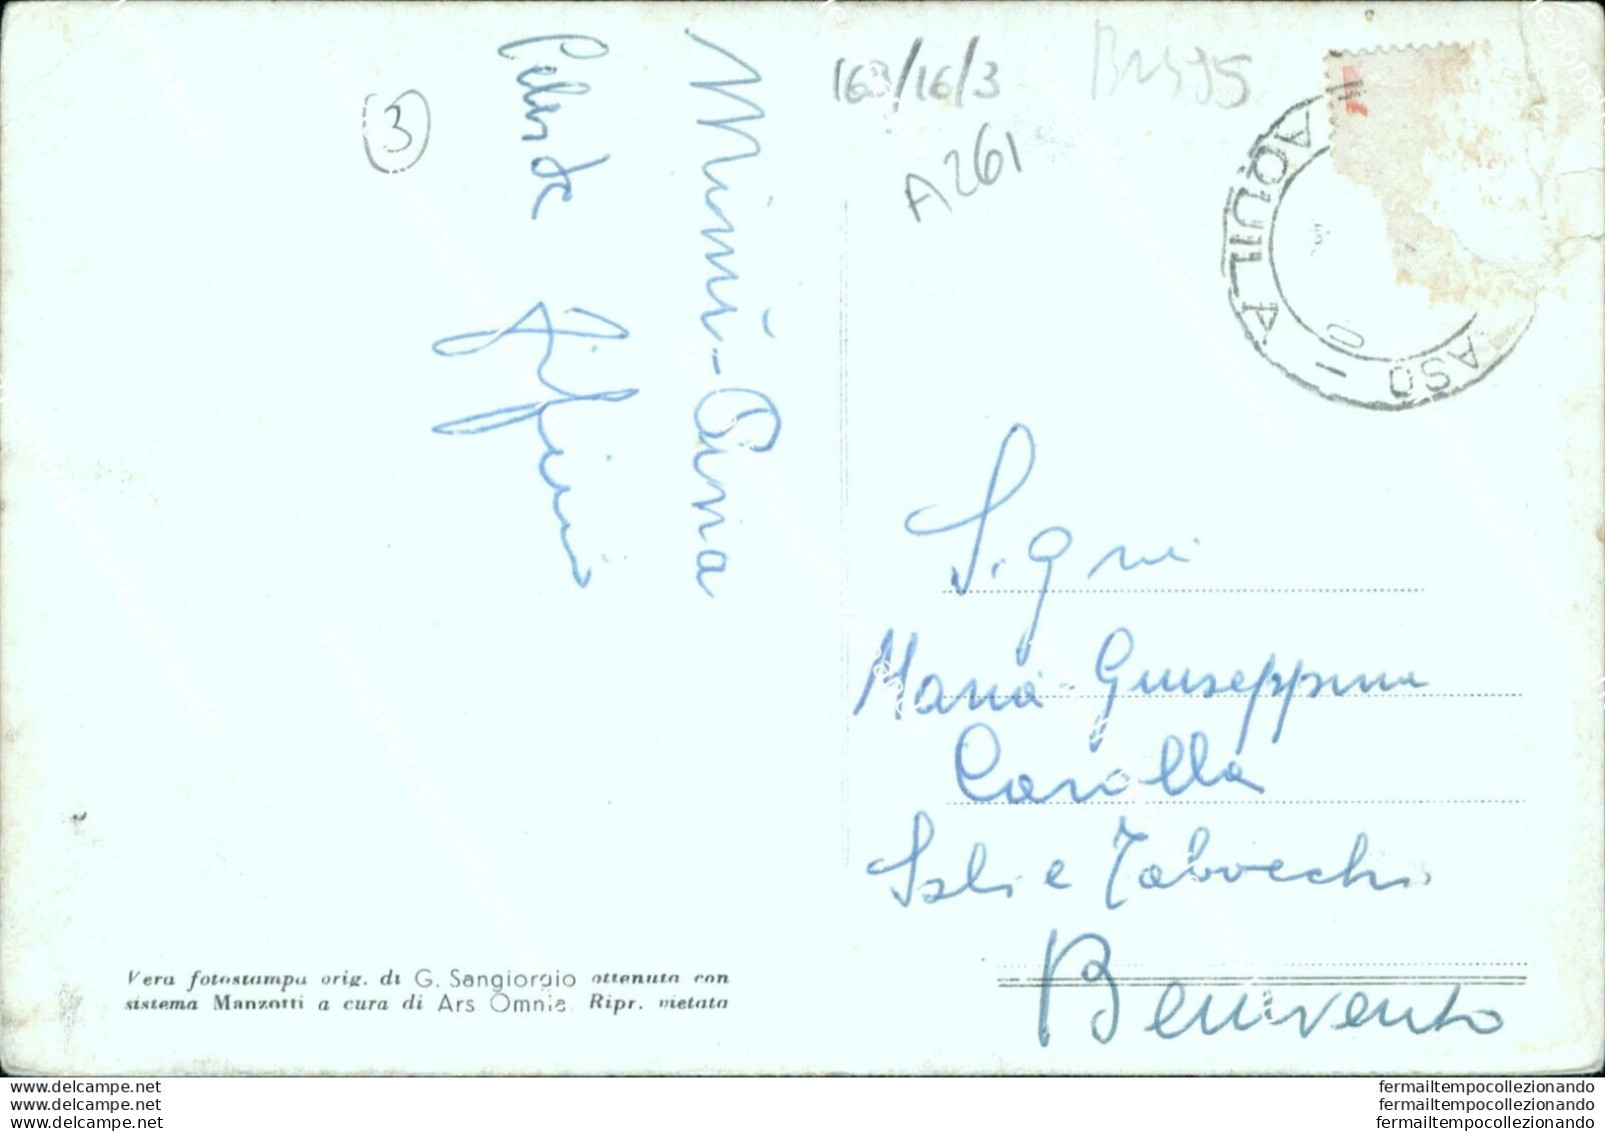 163/16/3
A261
3
AQUILA
ASO
Mimì-Pina
S.gni
Maria Giuseppina
Carolla
Sali e Tabacchi
Benevento
Vera fotostampa orig. di G. Sangiorgio ottenuta con
sistema Manzotti a cura di Ars Omnia. Ripr. vietata
www.delcampe.net
www.delcampe.net
www.delcampe.net
fermailtempocollezionando
fermailtempocollezionando
fermailtempocollezionando